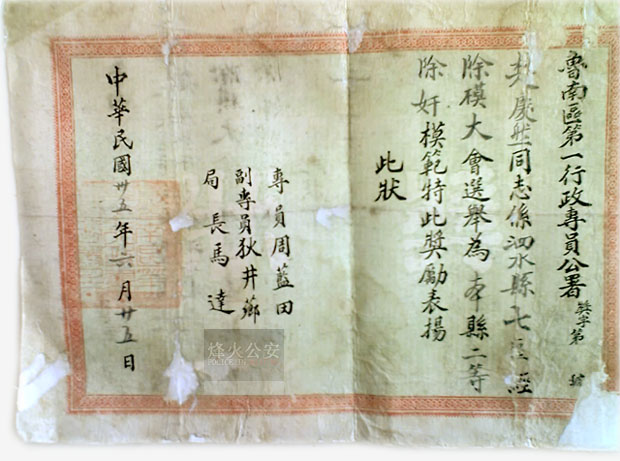 魯南區第一行政專員公署
獎字第 號
慶然同志係泗水縣七區經
除模大會選舉為本縣二等
除奸模範特此獎勵表揚
此狀
專員周藍田
副專員狄井薌
局長馬達
中華民國卅五年六月廿五日
烽火公安